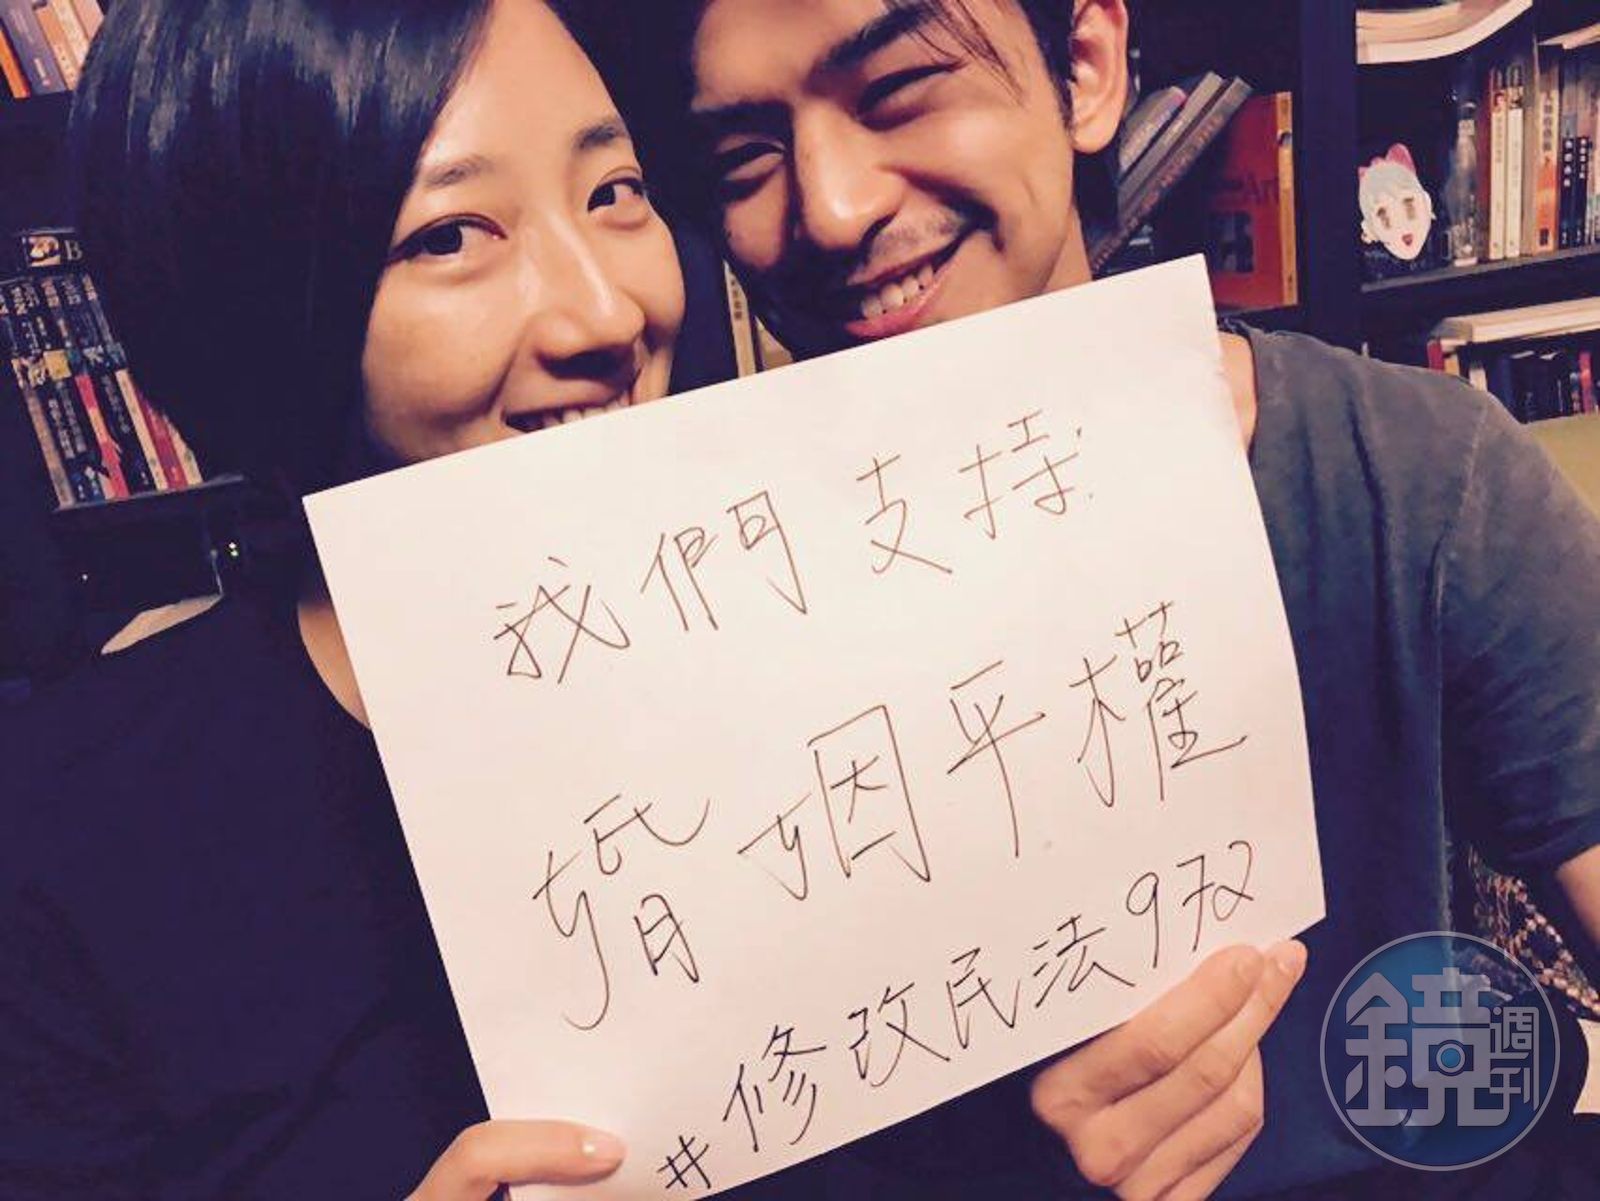 我們支持
婚姻平權
#修改民法972
鏡週刊